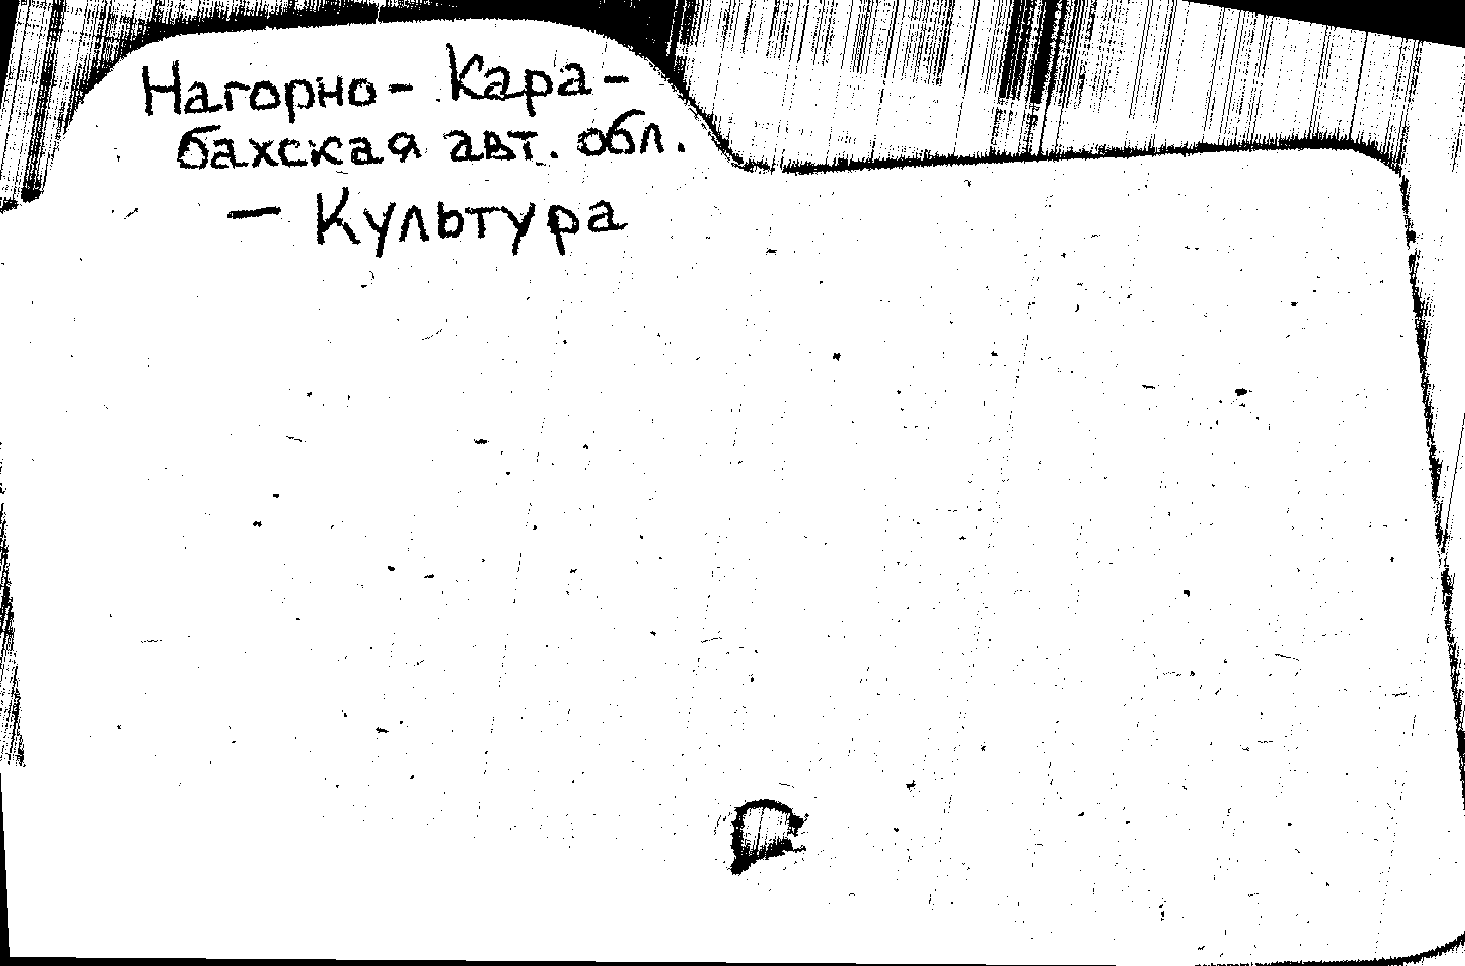 Нагорно- Кара-
бахская авт. обл.
— Культура